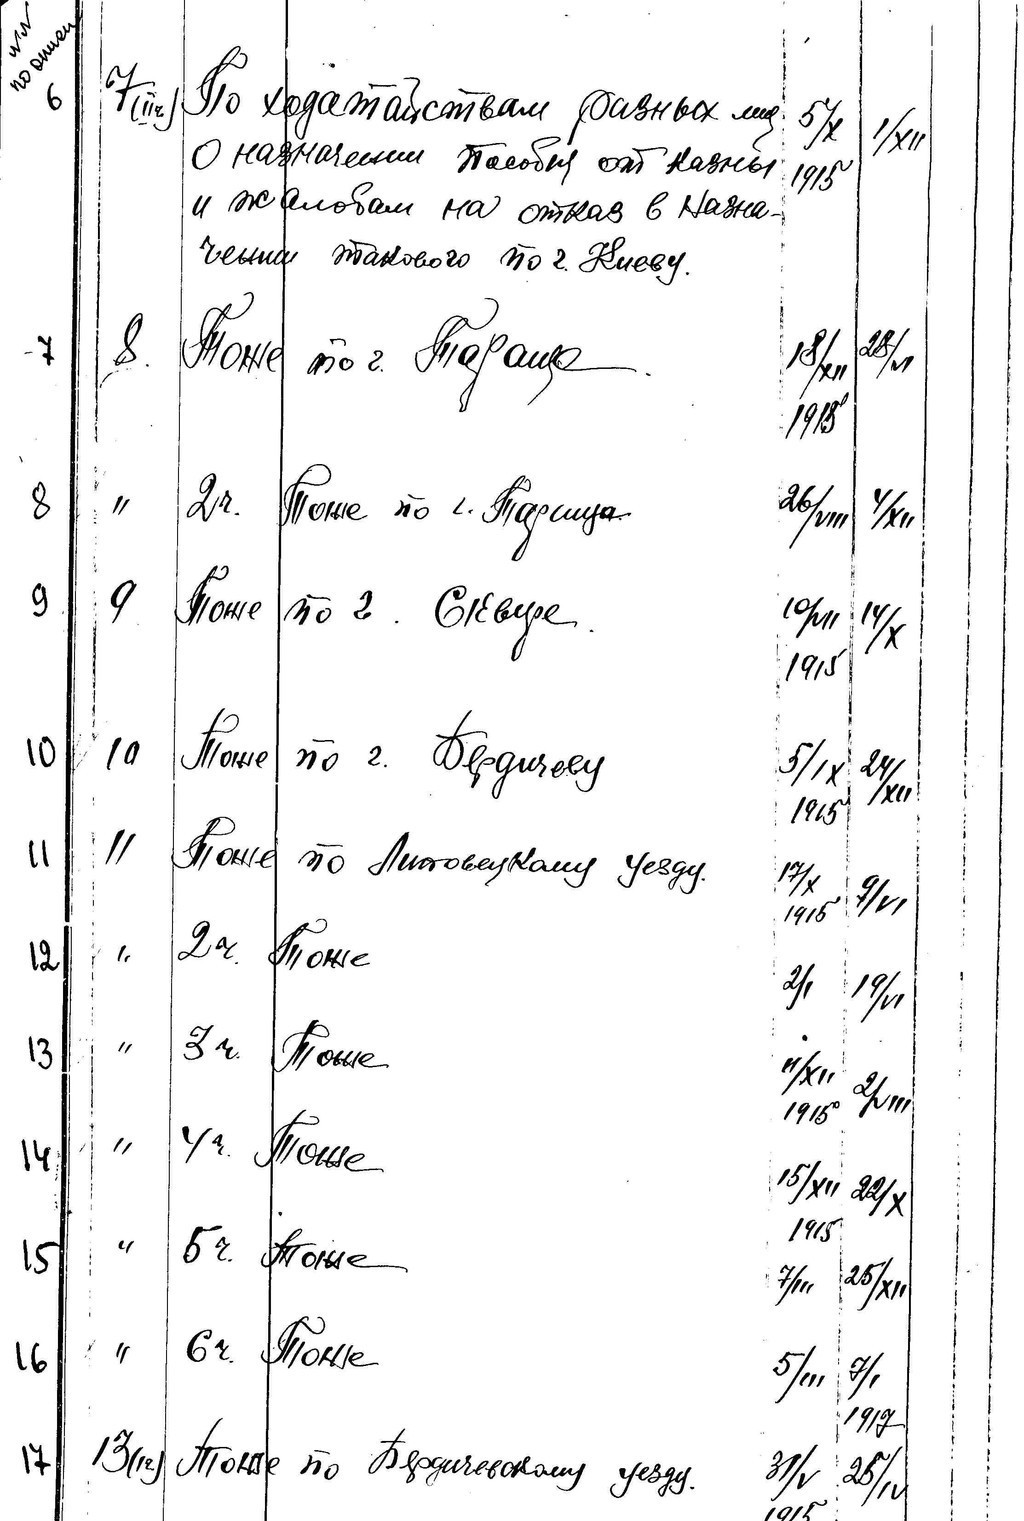 №№ по описи
6 7(IIч) По ходатайствам разных лиц 5/X 1/XII
О назначении пособия от казны 1915
и жалобам на отказ в назна-
чении такового по г. Киеву.
7 8. Тоже по г. Тараще. 18/XII 28/VI
1915
8 " 2ч. Тоже по г. Тараща 26/VIII 4/XII
9 9 Тоже по г. Сквире. 10/VII 14/X
1915
10 10 Тоже по г. Бердичеву 5/IX 24/XII
1915
11 11 Тоже по Липовецкому уезду. 17/X 9/VI
1915
12 " 2ч. Тоже
2/I 19/VI
13 " 3ч. Тоже 11/XII 2/VIII
1915
14 " 4ч. Тоже
15/XII 22/X
1915
15 " 5ч. Тоже
7/III 25/XII
16 " 6ч. Тоже 5/III 7/I
1917
17 13(Iч) Тоже по Бердичевскому уезду. 31/V 25/IV
1915